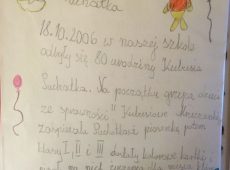 Puchatka
18.10.2006 w naszej szkole
odbyły się 80 urodziny Kubusia
Puchatka. Na początku grupa dzieci
ze sprawności " Kubusiowe
zaśpiewała Puchatkowi piosenkę potem
klasy I, II i III dostały kolorowe kartki i
na nich